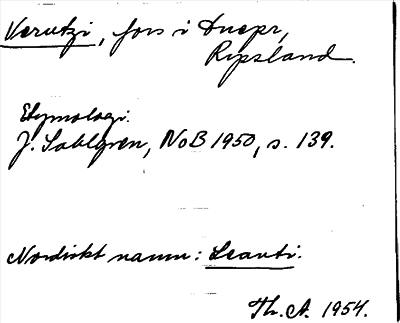 Verutzi, fors i Dnepr,
Rysland.
Etymologi:
J. Sahlgren, NoB 1950, s. 139.
Nordiskt namn: Leanti.
Th. A. 1954.